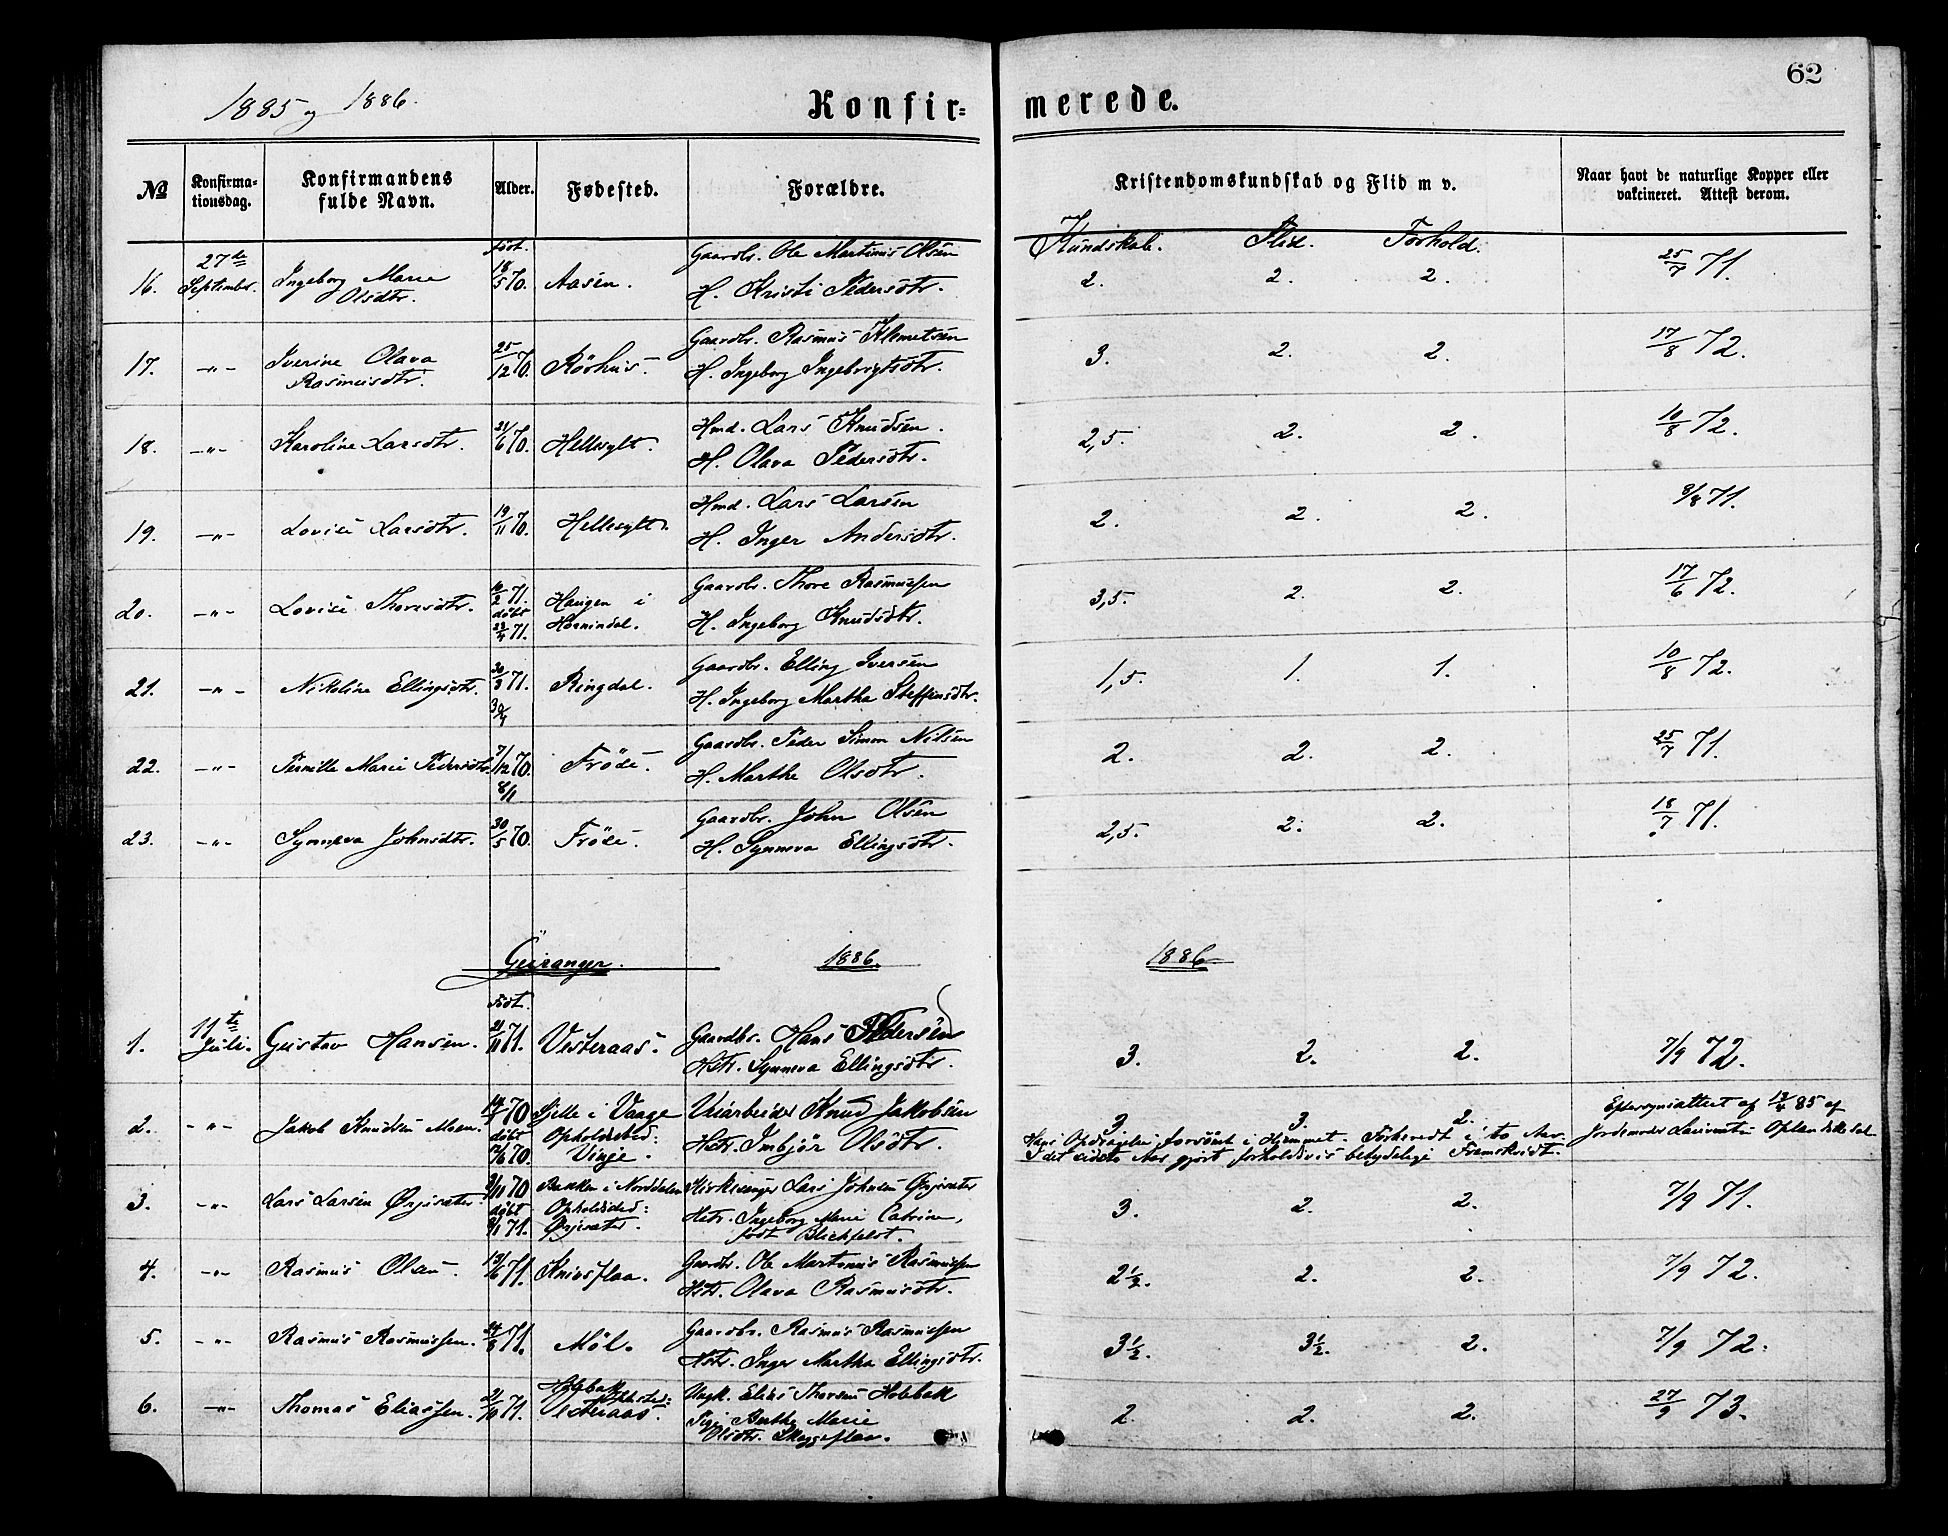 62
1885 og 1886.
Konfir= merede.
№ Konfirma-tionsdag. Konfirmandens fulde Navn. Alder. Fødested. Forældre. Kristendomskundskab og Flid m v. Naar havt de naturlige Kopper eller vakcineret. Attest derom.
Født. Kundskab. Flid. Forhold.
16. 27de September. Ingeborg Marie Olsdtr. 18/5 70. Aasen. Gaardbr. Ole Martinus Olsen 2. 2. 2. 25/7 71.
H. Kristi Pedersdtr.
17. -"- Iverine Olava Rasmusdtr. 25/12 70. Rørhus. Gaardbr. Rasmus Klemetsen 3. 2. 2. 17/8 72.
H. Ingeborg Ingebrigtsdtr.
18. -"- Karoline Larsdtr. 21/6 70. Hellesylt. Hmd. Lars Knudsen. 2,5. 2. 2. 10/8 72.
H. Olava Pedersdtr.
19. -"- Lovise Larsdtr. 19/11 70. Hellesylt. Hmd. Lars Larsen 2. 2. 2. 9/8 71.
H. Inger Andersdtr.
20. -"- Lovise Thoresdtr. 10/2 71. døbt 23/4 71. Haugen i Hornindal. Gaardbr. Thore Rasmussen 3,5. 2. 2. 17/6 72.
H. Ingeborg Knudsdtr.
21. -"- Nikoline Ellingsdtr. 30/3 71. 30/4 Ringdal. Gaardbr. Elling Iversen 1,5. 1. 1. 10/8 72.
H. Ingeborg Martha Steffensdtr.
22. -"- Pernille Marie Pedersdtr. 7/12 70. 8/1 Frøde. Gaardbr. Peder Simon Nilsen 2. 2. 2. 25/7 71.
H. Marthe Olsdtr.
23. -"- Synneva Johnsdtr. 30/5 70. Frøde. Gaardbr. John Olsen 2,5. 2. 2. 18/7 71.
H. Synneva Ellingsdtr.
Geiranger. 1886. 1886
Født.
1. 11te Juli. Gustav Hansen. 21/11 71. Vesteraas. Gaardbr. Hans Pedersen 3. 2. 2. 7/9 72.
Hstr. Synneva Ellingsdtr.
2. -"- Jakob Knudsen Moen. 70 døbt 70. Sjelle i Vaage Opholdssted: Vinje. Veiarbeider Knud Jakobsen 3. 3. 2. Eftersynsattest af 85 af
Hstr. Imbjør Olsdtr. Hans Opdragelse forsømt i Hjemmet. Forberedt i to Aar. Jordemoder
I det sidste Aar gjort forholdsvis betydelige Fremskridt.
3. -"- Lars Larsen Ørjesæter. 9/11 70 døbt 8/1 71. Bakken i Norddalen Opholdssted: Ørjesæter. Kirkesanger Lars Johnsen Ørjesæter 3. 2. 2. 7/9 71.
Hstr. Ingeborg Marie Catrine, født Blichfeldt.
4. -"- Rasmus Olsen. 19/6 71. Knivsflaa. Gaardbr. Ole Martinus Rasmussen 2½. 2. 2. 7/9 72.
Hstr. Olava Rasmusdtr.
5. -"- Rasmus Rasmussen. 24/8 71. Møl. Gaardbr. Rasmus Rasmussen 3½. 3½. 2. 7/9 72.
Hstr. Inger Martha Ellingsdtr.
6. -"- Thomas Eliassen. 21/10 71. Holebak Opholdssted: Vesteraas. Ungk. Elias Thorsen Holebak 2. 2. 2. 27/9 73.
Pige Berthe Marie
Olsdtr. Skageflaa.